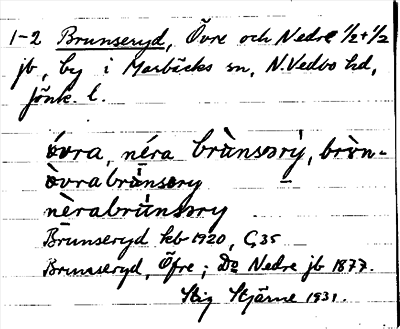 1-2 Brunseryd, Övre och Nedre 1/2+1/2
jb, by i Marbäcks sn, N.Vedbo hd,
Jönk. l.
óvra, néra brùnsərỳ, brùn-
òvrabrùnsəry
nèrabrùnsəry
Brunseryd kb 1920, C, 35
Brunseryd, Öfre; Do Nedre jb 1877.
Stig Stjärne 1931.